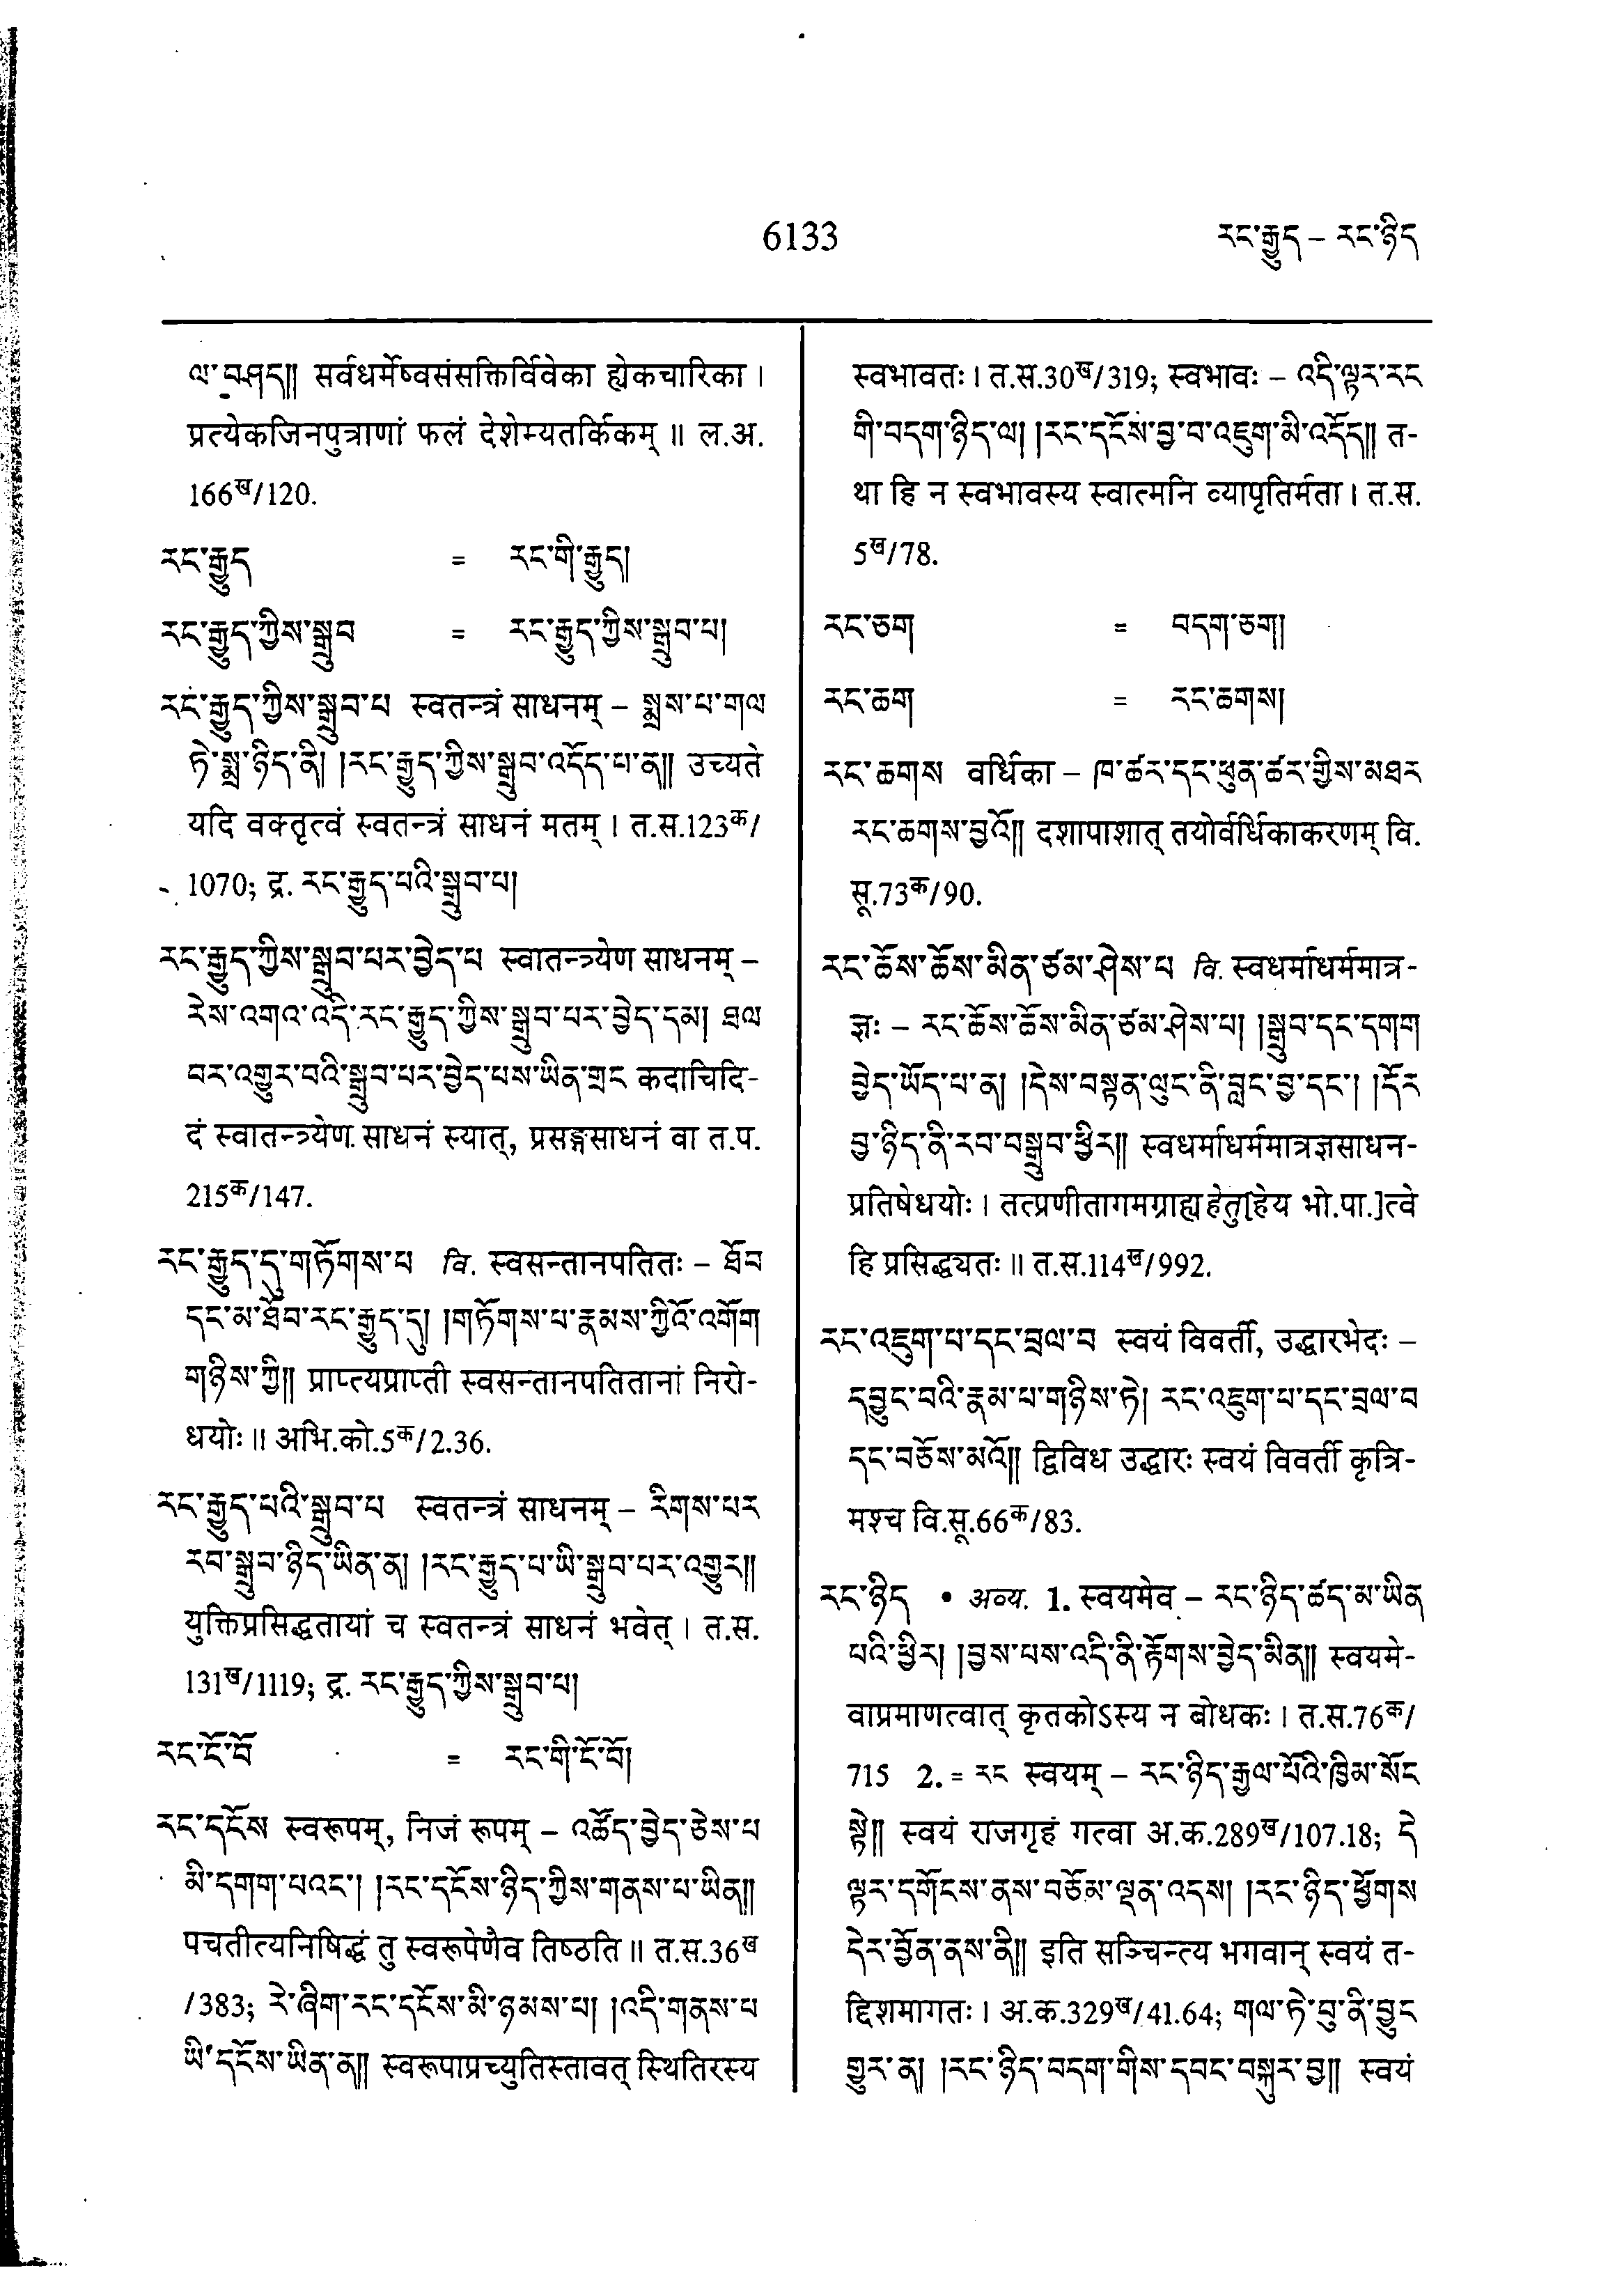 6133
རང་རྒྱུད – རང་ཉིད
ལ་བཤད༎ सर्वधर्मेष्वसंसक्तिर्विवेका ह्येकचारिका ।
प्रत्येकजिनपुत्राणां फलं देशेम्यतर्किकम् ॥ ल.अ.
166ख/120.
རང་རྒྱུད = རང་གི་རྒྱུད།
རང་རྒྱུད་ཀྱིས་སྒྲུབ = རང་རྒྱུད་ཀྱིས་སྒྲུབ་པ།
རང་རྒྱུད་ཀྱིས་སྒྲུབ་པ स्वतन्त्रं साधनम् – སྨྲས་པ་གལ
ཏེ་སྨྲ་ཉིད་ནི། །རང་རྒྱུད་ཀྱིས་སྒྲུབ་འདོད་པ་ན༎ उच्यते
यदि वक्तृत्वं स्वतन्त्रं साधनं मतम् । त.स.123क/
1070; द्र. རང་རྒྱུད་པའི་སྒྲུབ་པ།
རང་རྒྱུད་ཀྱིས་སྒྲུབ་པར་བྱེད་པ स्वातन्त्र्येण साधनम् –
རེས་འགའ་འདི་རང་རྒྱུད་ཀྱིས་སྒྲུབ་པར་བྱེད་དམ། ཐལ
བར་འགྱུར་བའི་སྒྲུབ་པར་བྱེད་པས་ཡིན་གྲང कदाचिदि-
दं स्वातन्त्र्येण साधनं स्यात्, प्रसङ्गसाधनं वा त.प.
215क/147.
རང་རྒྱུད་དུ་གཏོགས་པ वि. स्वसन्तानपतितः – ཐོབ
དང་མ་ཐོབ་རང་རྒྱུད་དུ། །གཏོགས་པ་རྣམས་ཀྱིའོ་འགོག
གཉིས་ཀྱི༎ प्राप्त्यप्राप्ती स्वसन्तानपतितानां निरो-
धयोः ॥ अभि.को.5क/2.36.
རང་རྒྱུད་པའི་སྒྲུབ་པ स्वतन्त्रं साधनम् – རིགས་པར
རབ་སྒྲུབ་ཉིད་ཡིན་ན། །རང་རྒྱུད་པ་ཡི་སྒྲུབ་པར་འགྱུར༎
युक्तिप्रसिद्धतायां च स्वतन्त्रं साधनं भवेत् । त.स.
131ख/1119; द्र. རང་རྒྱུད་ཀྱིས་སྒྲུབ་པ།
རང་ངོ་བོ = རང་གི་ངོ་བོ།
རང་དངོས स्वरूपम्, निजं रूपम् – འཚོད་བྱེད་ཅེས་པ
མི་དགག་པའང་། །རང་དངོས་ཉིད་ཀྱིས་གནས་པ་ཡིན༎
पचतीत्यनिषिद्धं तु स्वरूपेणैव तिष्ठति ॥ त.स.36ख
/383; རེ་ཞིག་རང་དངོས་མི་ཉམས་པ། །འདི་གནས་པ
ཡི་དངོས་ཡིན་ན༎ स्वरूपाप्रच्युतिस्तावत् स्थितिरस्य
स्वभावतः । त.स.30ख/319; स्वभावः – འདི་ལྟར་རང
གི་བདག་ཉིད་ལ། །རང་དངོས་བྱ་བ་འཇུག་མི་འདོད༎ त-
था हि न स्वभावस्य स्वात्मनि व्यापृतिर्मता । त.स.
5ख/78.
རང་ཅག = བདག་ཅག།
རང་ཆག = རང་ཆགས།
རང་ཆགས वर्धिका – ཁ་ཚར་དང་ཕུན་ཚར་གྱིས་མཐར
རང་ཆགས་བྱའོ༎ दशापाशात् तयोर्वर्धिकाकरणम् वि.
सू.73क/90.
རང་ཆོས་ཆོས་མིན་ཙམ་ཤེས་པ वि. स्वधर्माधर्ममात्र-
ज्ञः – རང་ཆོས་ཆོས་མིན་ཙམ་ཤེས་པ། །སྒྲུབ་དང་དགག
བྱེད་ཡོད་པ་ན། །དེས་བསྟན་ལུང་ནི་བླང་བྱ་དང་། །དོར
བྱ་ཉིད་ནི་རབ་བསྒྲུབ་ཕྱིར༎ स्वधर्माधर्ममात्रज्ञसाधन-
प्रतिषेधयोः । तत्प्रणीतागमग्राह्यहेतु[हेय भो.पा.]त्वे
हि प्रसिद्ध्यतः ॥ त.स.114ख/992.
རང་འཇུག་པ་དང་བྲལ་བ स्वयं विवर्ती, उद्धारभेदः –
དབྱུང་བའི་རྣམ་པ་གཉིས་ཏེ། རང་འཇུག་པ་དང་བྲལ་བ
དང་བཅོས་མའོ༎ द्विविध उद्धारः स्वयं विवर्ती कृत्रि-
मश्च वि.सू.66क/83.
རང་ཉིད • अव्य. 1. स्वयमेव – རང་ཉིད་ཚད་མ་ཡིན
པའི་ཕྱིར། །བྱས་པས་འདི་ནི་རྟོགས་བྱེད་མིན༎ स्वयमे-
वाप्रमाणत्वात् कृतकोऽस्य न बोधकः । त.स.76क/
715 2. = རང स्वयम् – རང་ཉིད་རྒྱལ་པོའི་ཁྱིམ་སོང
སྟེ༎ स्वयं राजगृहं गत्वा अ.क.289ख/107.18; དེ
ལྟར་དགོངས་ནས་བཅོམ་ལྡན་འདས། །རང་ཉིད་ཕྱོགས
དེར་བྱོན་ནས་ནི༎ इति सञ्चिन्त्य भगवान् स्वयं त-
द्दिशमागतः । अ.क.329ख/41.64; གལ་ཏེ་བུ་ནི་བྱུང
གྱུར་ན། །རང་ཉིད་བདག་གིས་དབང་བསྐུར་བྱ༎ स्वयं